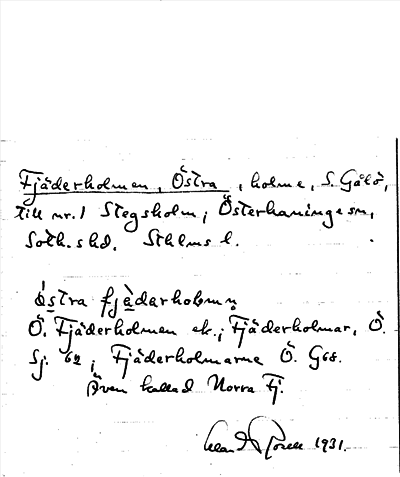 Fjäderholmen, Östra, holme, S. Gålö,
till nr. 1 Stegsholm, Österhaninge sn,
Soth. shd. Sthlms l.
östra fjäderholmen
Ö. Fjäderholmen ek.; Fjäderholmar, Ö.
Sj. 62; Fjäderholmarne Ö. G68.
Även kallad Norra Fj.
1931.